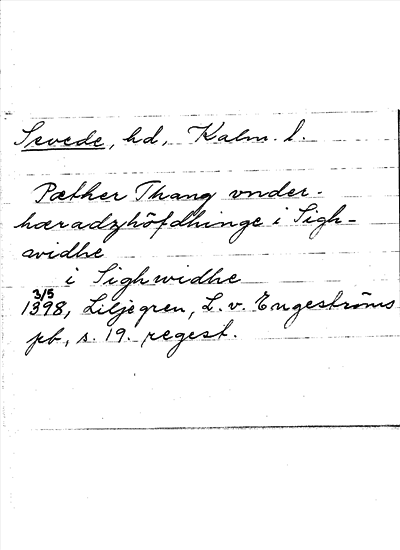 Sevede, hd, Kalm. l.
Pæther Thang vnder-
hæradzhöfdhinge i Sigh-
widhe
i Sighwidhe
3/5
1398, Liljegren, L. v. Engeströms
pb, s. 19. regest.